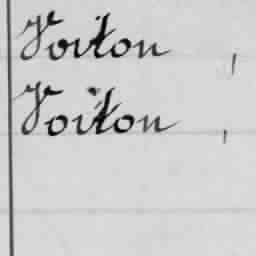 Voiton ,
Voiton ,